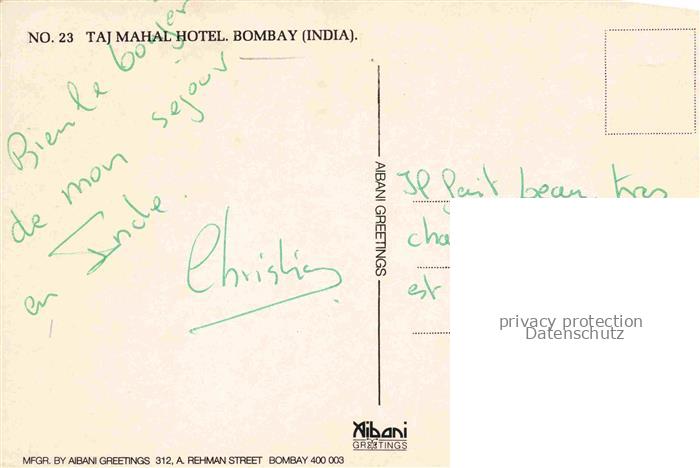 NO. 23 TAJ MAHAL HOTEL. BOMBAY (INDIA).
Bien le bonjour
de mon séjour
en Inde.
Christian
AIBANI GREETINGS
Il fait beau, très
cha
est
privacy protection
Datenschutz
Aibani
GREETINGS
MFGR. BY AIBANI GREETINGS 312, A. REHMAN STREET BOMBAY 400 003